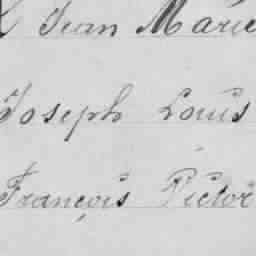 Jean Marie
Joseph Louis
François Victor